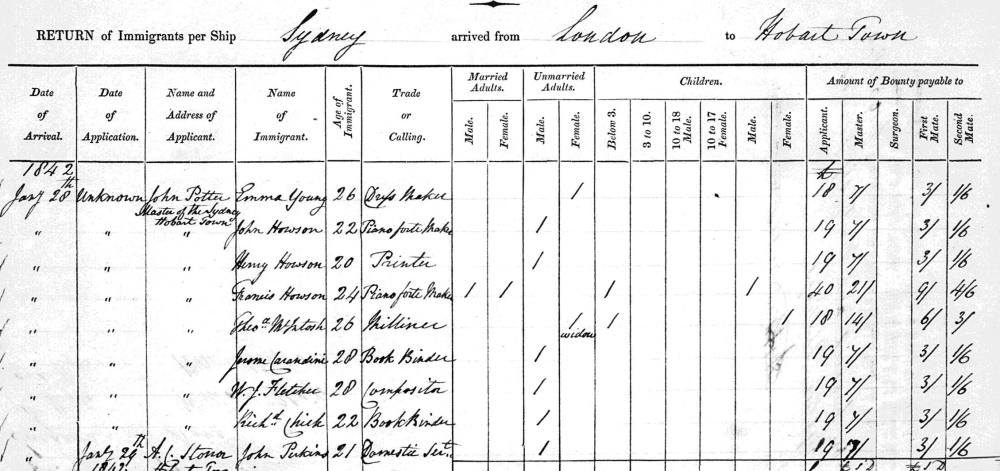 RETURN of Immigrants per Ship Sydney arrived from London to Hobart Town
Date of Arrival. Date of Application. Name and Address of Applicant. Name of Immigrant. Age of Immigrant. Trade or Calling. Married Adults. Male. Female. Unmarried Adults. Male. Female. Children. Below 3. 3 to 10. 10 to 18 Male. 10 to 17 Female. Male. Female. Amount of Bounty payable to Applicant. Master. Surgeon. First Mate. Second Mate.
1842
Jany 28th Unknown John Potter Emma Young 26 Dress Maker 1 18 7/ 3/ 1/6
Master of the Sydney
Hobart Town
" " " John Howson 22 Piano forte Maker 1 19 7/ 3/ 1/6
" " " Henry Howson 20 Printer 1 19 7/ 3/ 1/6
" " " Francis Howson 24 Piano forte Maker 1 1 1 1 40 21/ 9/ 4/6
" " " McIntosh 26 Milliner 1 widow 1 1 18 14/ 6/ 3/
" " " Jerome Carandini 28 Book Binder 1 19 7/ 3/ 1/6
" " " W. J. Fletcher 28 Compositor 1 19 7/ 3/ 1/6
" " " Richd Chick 22 Book Binder 1 19 7/ 3/ 1/6
" Jany 29th A. C. Stonor John Perkins 21 Domestic Sert. 1 19 7/ 3/ 1/6
1842